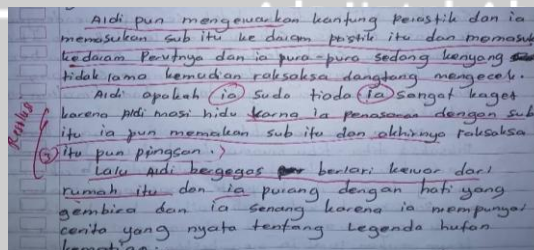 Aldi pun mengeluarkan kantung pelastik dan ia
memasukan sub itu ke dalam plastik itu dan memasuk
kedalam Perutnya dan ia pura-pura sedang kenyang
tidak lama kemudian raksaksa dangtang mengecek.
Aldi apakah ia suda tiada ia sangat kaget
karena Aldi masi hidu karna ia penasaran dengan sub
itu ia pun memakan sub itu dan akhirnya raksaksa
itu pun pingsan.
Lalu Aldi bergegas berlari keluar dari
rumah itu dan ia pulang dengan hati yang
gembira dan ia senang karena ia mempunyai
cerita yang nyata tentang Legenda hutan